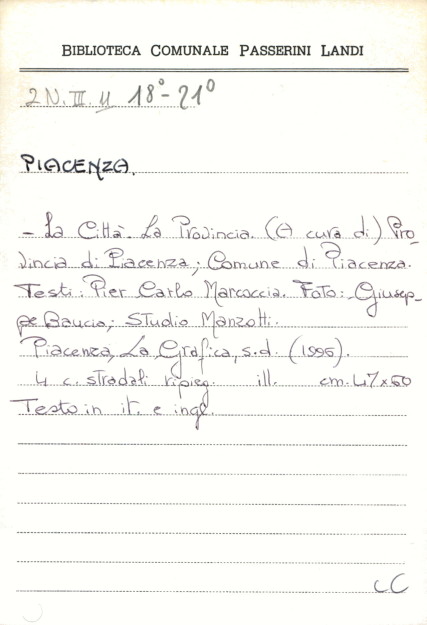 BIBLIOTECA COMUNALE PASSERINI LANDI
2 N. III. 4 18° - 21°
PIACENZA.
- La Città. La Provincia. (A cura di) Pro-
vincia di Piacenza; Comune di Piacenza.
Testi: Pier Carlo Marcoccia. Foto: Giusep-
pe Baucia; Studio Manzotti.
Piacenza, La Grafica, s.d. (1996).
4 c. stradali ripieg. ill. cm. 47x60
Testo in it. e ingl.
CC